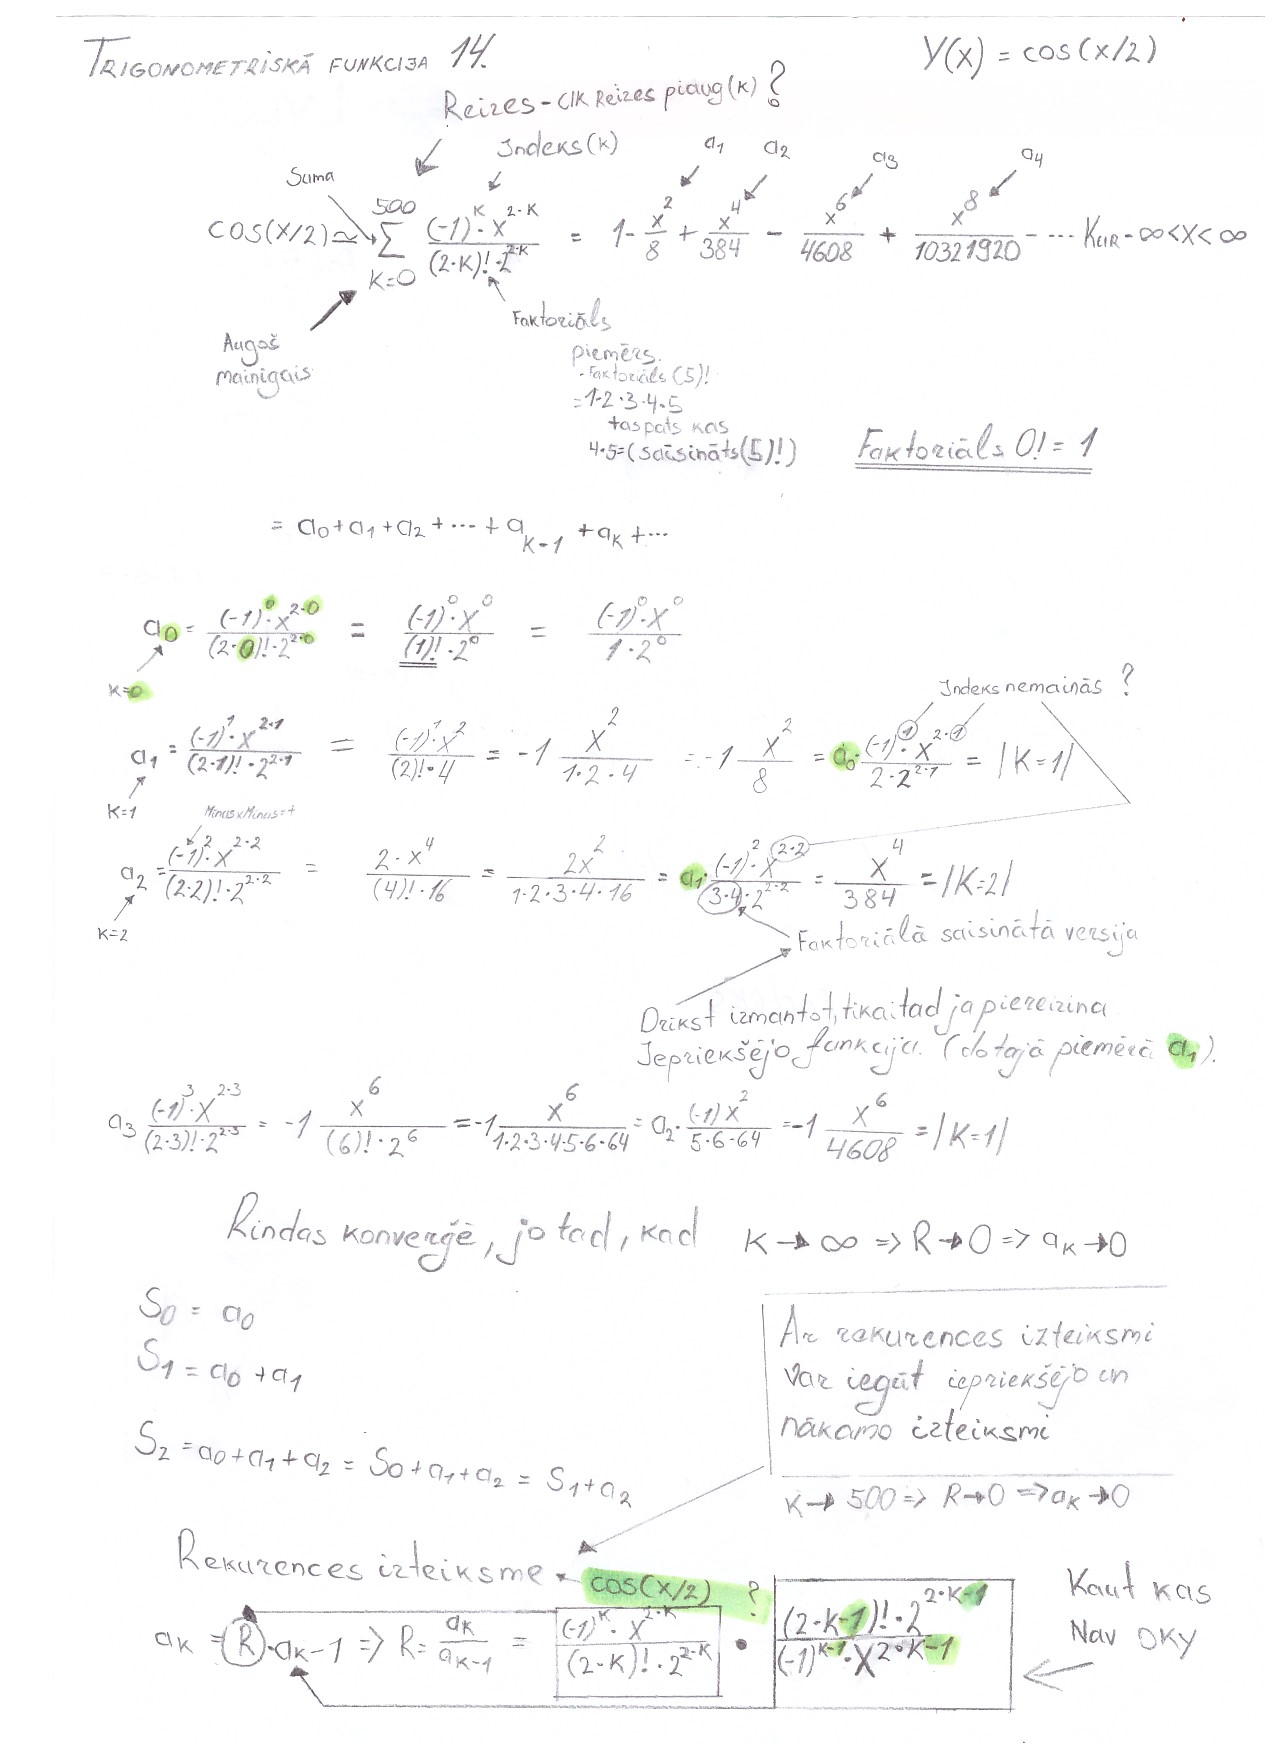 TRIGONOMETRISKĀ FUNKCIJA 14. Y(x) = cos(x/2)
Reizes - CIK Reizes pieaug(k) ?
Indeks(k) a1 a2 a3 a4
Suma
cos(x/2) ≃ 500 Σ K=0 (-1)^K · x^(2·K) / (2·K)! · 2^(2·K) = 1 - x^2/8 + x^4/384 - x^6/4608 + x^8/10321920 - ... Kur -∞<x<∞
Augošs
mainīgais
Faktoriāls
piemērs.
- Faktoriāls (5)!
= 1·2·3·4·5
taspats kas
4·5=(saīsināts(5)!)
Faktoriāls 0! = 1
= a0 + a1 + a2 + ... + aK-1 + aK + ...
a0 = (-1)^0 · x^(2·0) / (2·0)! · 2^(2·0) = (-1)^0 · x^0 / (1)! · 2^0 = (-1)^0 · x^0 / 1·2^0
K=0
Indeks nemainās ?
a1 = (-1)^1 · x^(2·1) / (2·1)! · 2^(2·1) = (-1)^1 · x^2 / (2)! · 4 = -1 x^2 / 1·2·4 = -1 x^2 / 8 = a0 · (-1)^1 · x^(2·1) / 2·2^(2·1) = |K=1|
K=1
Minus x Minus = +
a2 = (-1)^2 · x^(2·2) / (2·2)! · 2^(2·2) = 2·x^4 / (4)! · 16 = 2x^2 / 1·2·3·4·16 = a1 · (-1)^2 · x^(2·2) / 3·4·2^(2·2) = x^4 / 384 = |K=2|
K=2
Faktoriālā saīsinātā versija
Drīkst izmantot, tikai tad ja piereizina
Iepriekšējo funkciju. (dotajā piemērā a1).
a3 (-1)^3 · x^(2·3) / (2·3)! · 2^(2·3) = -1 x^6 / (6)! · 2^6 = -1 x^6 / 1·2·3·4·5·6·64 = a2 · (-1)x^2 / 5·6·64 = -1 x^6 / 4608 = |K=1|
Rindas konverģē, jo tad, kad K → ∞ => R → 0 => aK → 0
S0 = a0
S1 = a0 + a1
S2 = a0 + a1 + a2 = S0 + a1 + a2 = S1 + a2
Ar rekurences izteiksmi
var iegūt iepriekšējo un
nākamo izteiksmi
K → 500 => R → 0 => aK → 0
Rekurences izteiksme cos(x/2) ?
aK = R · aK-1 => R = aK / aK-1 = (-1)^K · x^(2·K) / (2·K)! · 2^(2·K) · (2·K-1)! · 2^(2·K-1) / (-1)^(K-1) · x^(2·K-1)
Kaut kas
Nav OKY